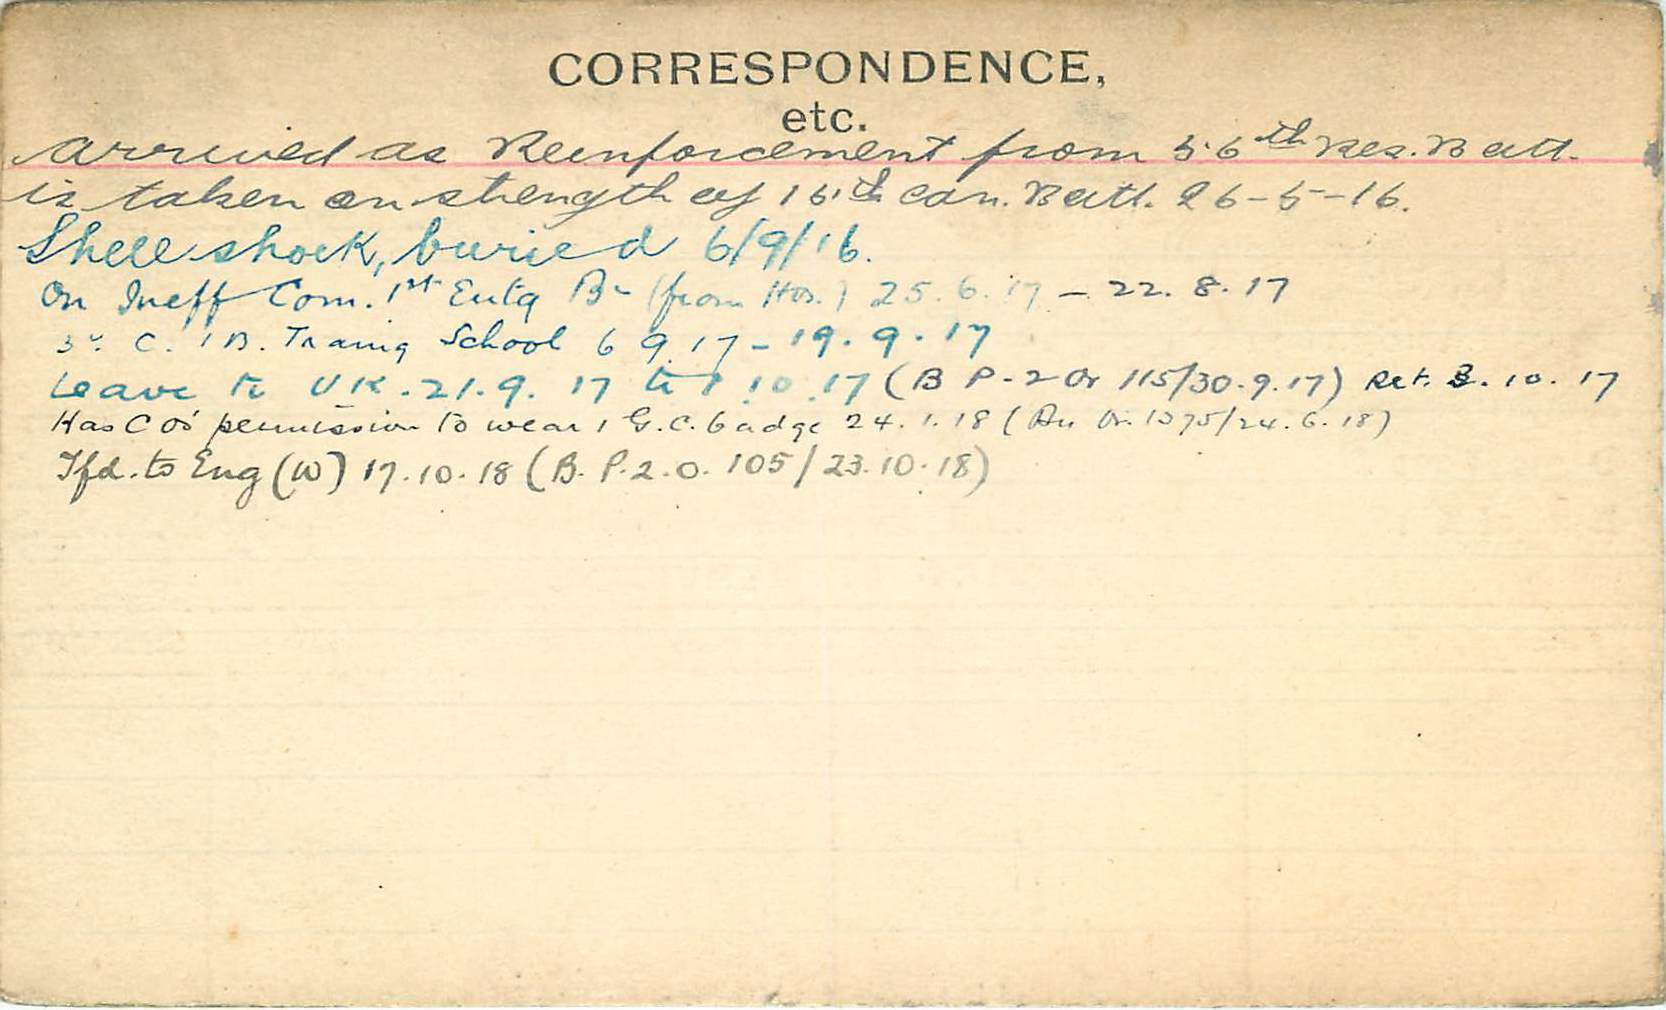 CORRESPONDENCE,
etc.
Arrived as Reinforcement from 56th Res. Batt.
is taken on strength of 15th Can. Batt. 26-5-16.
Shell shock, buried 6/9/16.
On Ineff Com. 1st Entg Bn (from Hos.) 25.6.17 - 22.8.17
C. I B. Traing School 6 9 17 - 19.9.17
Leave to UK. 21.9.17 to 1 10 17 (B P-2 Or 115/30.9.17) Ret. 3.10.17
Has C Os' permission to wear 1 G.C. badge 24.1.18 (Au Or. 1375/24.6.18)
Tfd. to Eng (W) 17.10.18 (B. P.2.O. 105/23.10.18)